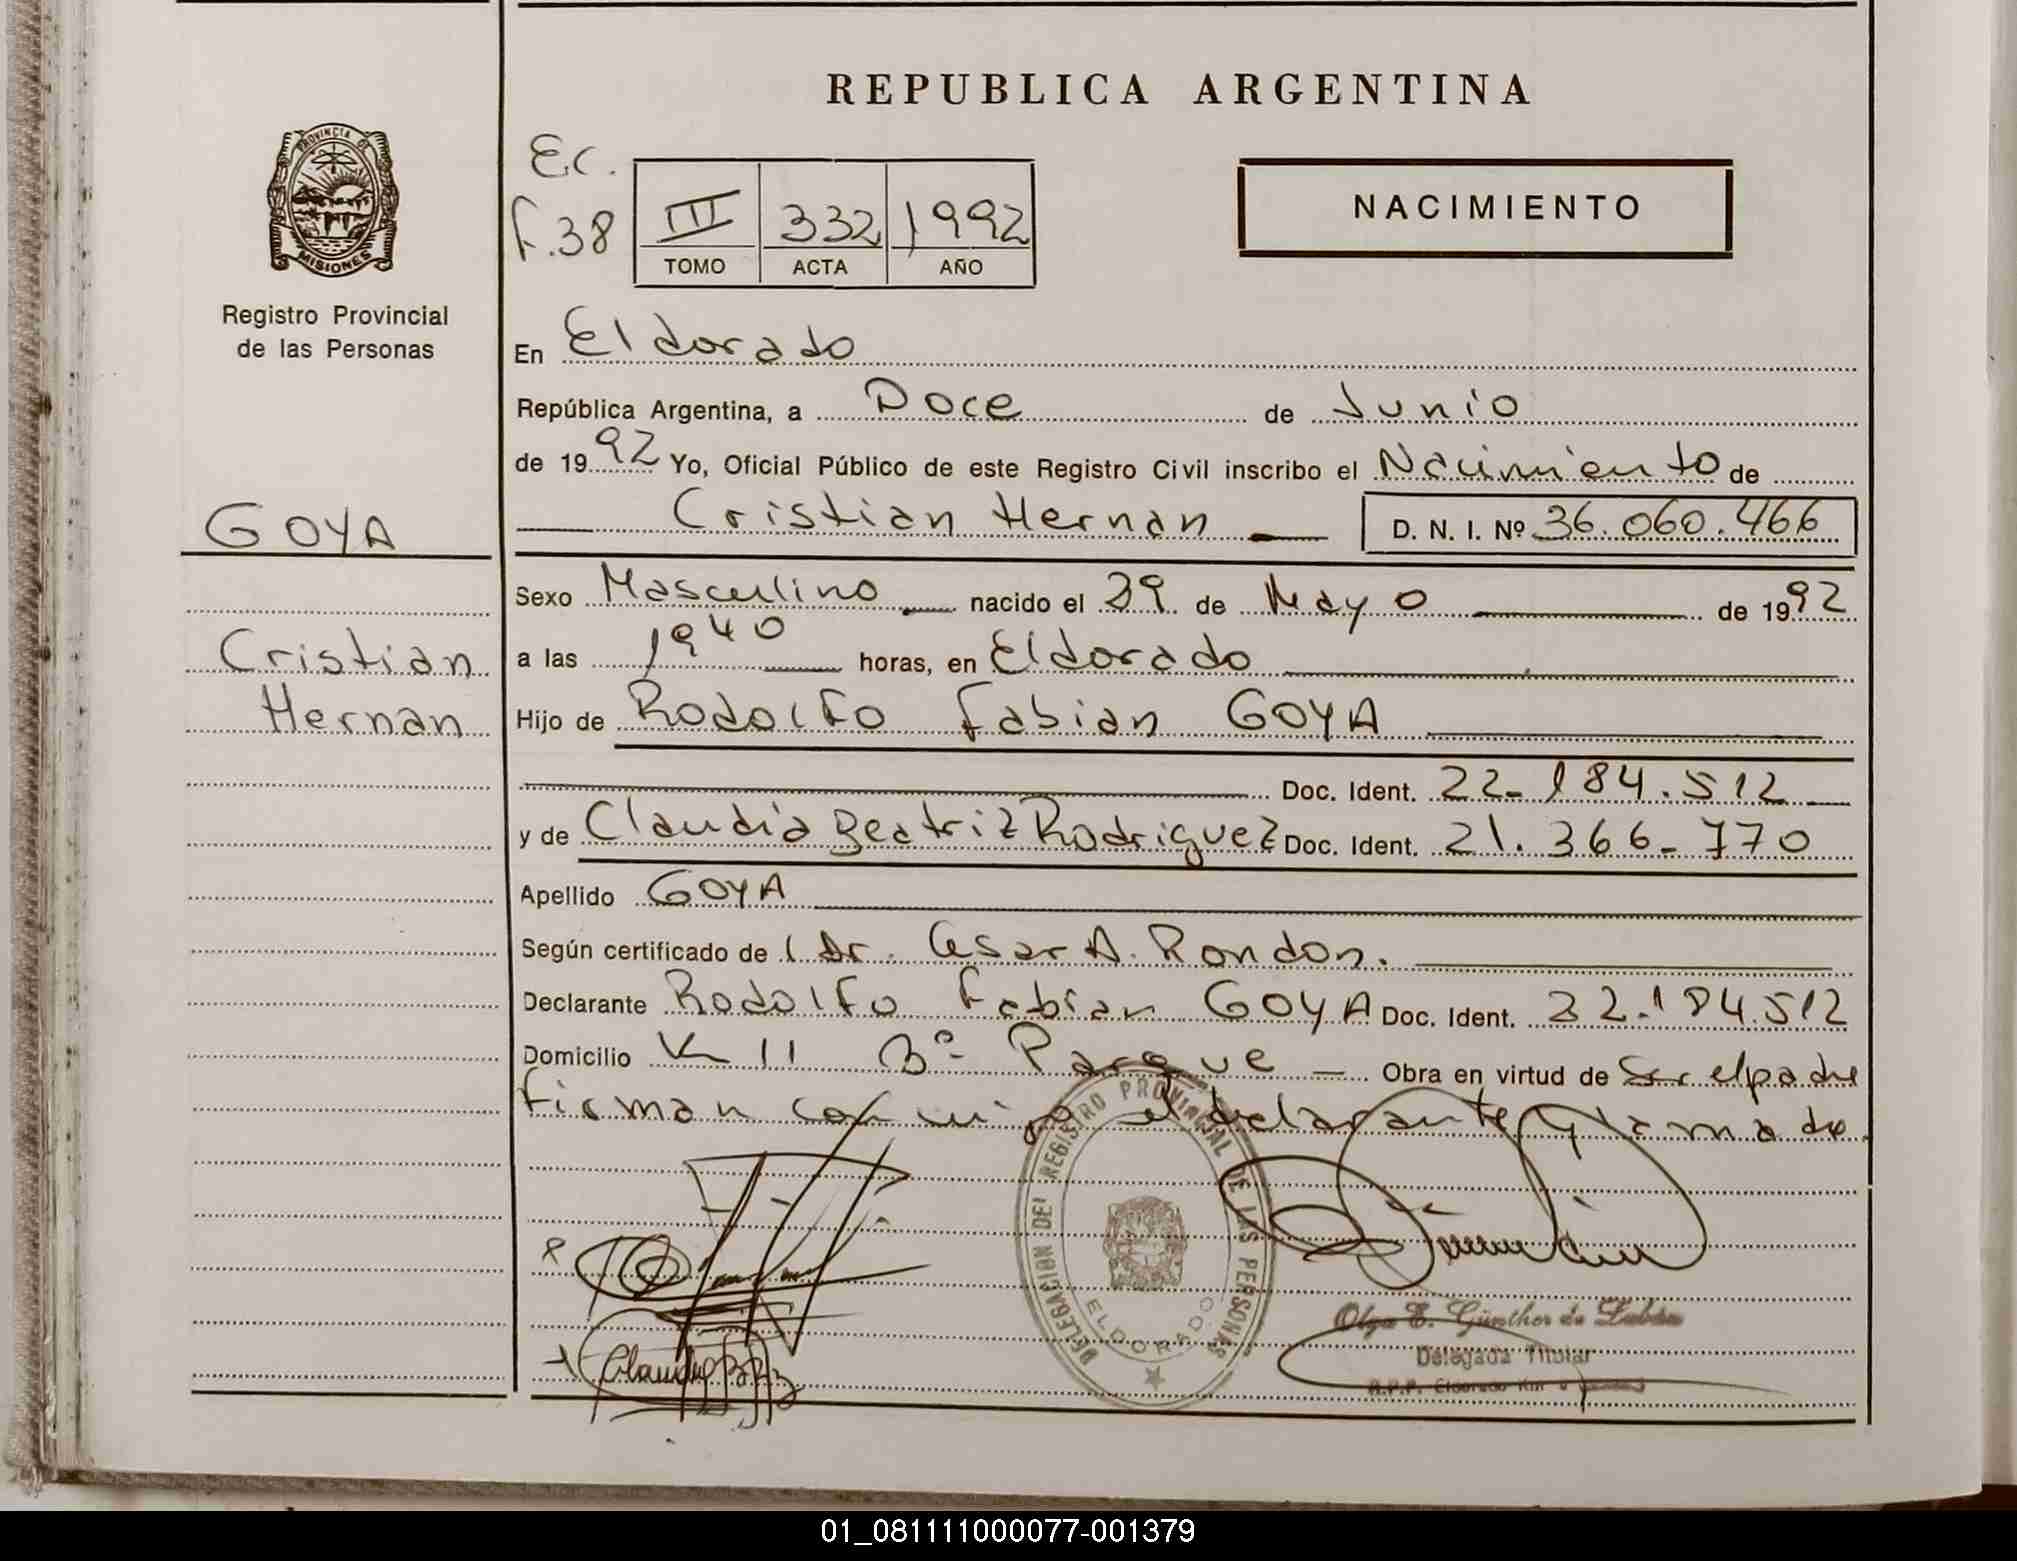 REPUBLICA ARGENTINA
PROVINCIA DE
MISIONES
Registro Provincial
de las Personas
Ec.
F.38
III 332 1992
TOMO ACTA AÑO
NACIMIENTO
En Eldorado
República Argentina, a Doce de Junio
de 1992 Yo, Oficial Público de este Registro Civil inscribo el Nacimiento de
Cristian Hernan D. N. I. Nº 36.060.466
GOYA
Cristian
Hernan
Sexo Masculino nacido el 29 de Mayo de 1992
a las 1940 horas, en Eldorado
Hijo de Rodolfo Fabian GOYA
Doc. Ident. 22-184.512
y de Claudia Beatriz Rodriguez Doc. Ident. 21.366-770
Apellido GOYA
Según certificado de l Dr. Cesar A. Rondon.
Declarante Rodolfo Fabian GOYA Doc. Ident. 22.184.512
Domicilio Km 11 3º Parque Obra en virtud de Ser el padre
firman conmigo el declarante y la madre.
DELEGACION DEL REGISTRO PROVINCIAL DE LAS PERSONAS
ELDORADO
Olga E. Günther de
Delegada Titular
R.P.P. Eldorado Km
01_081111000077-001379